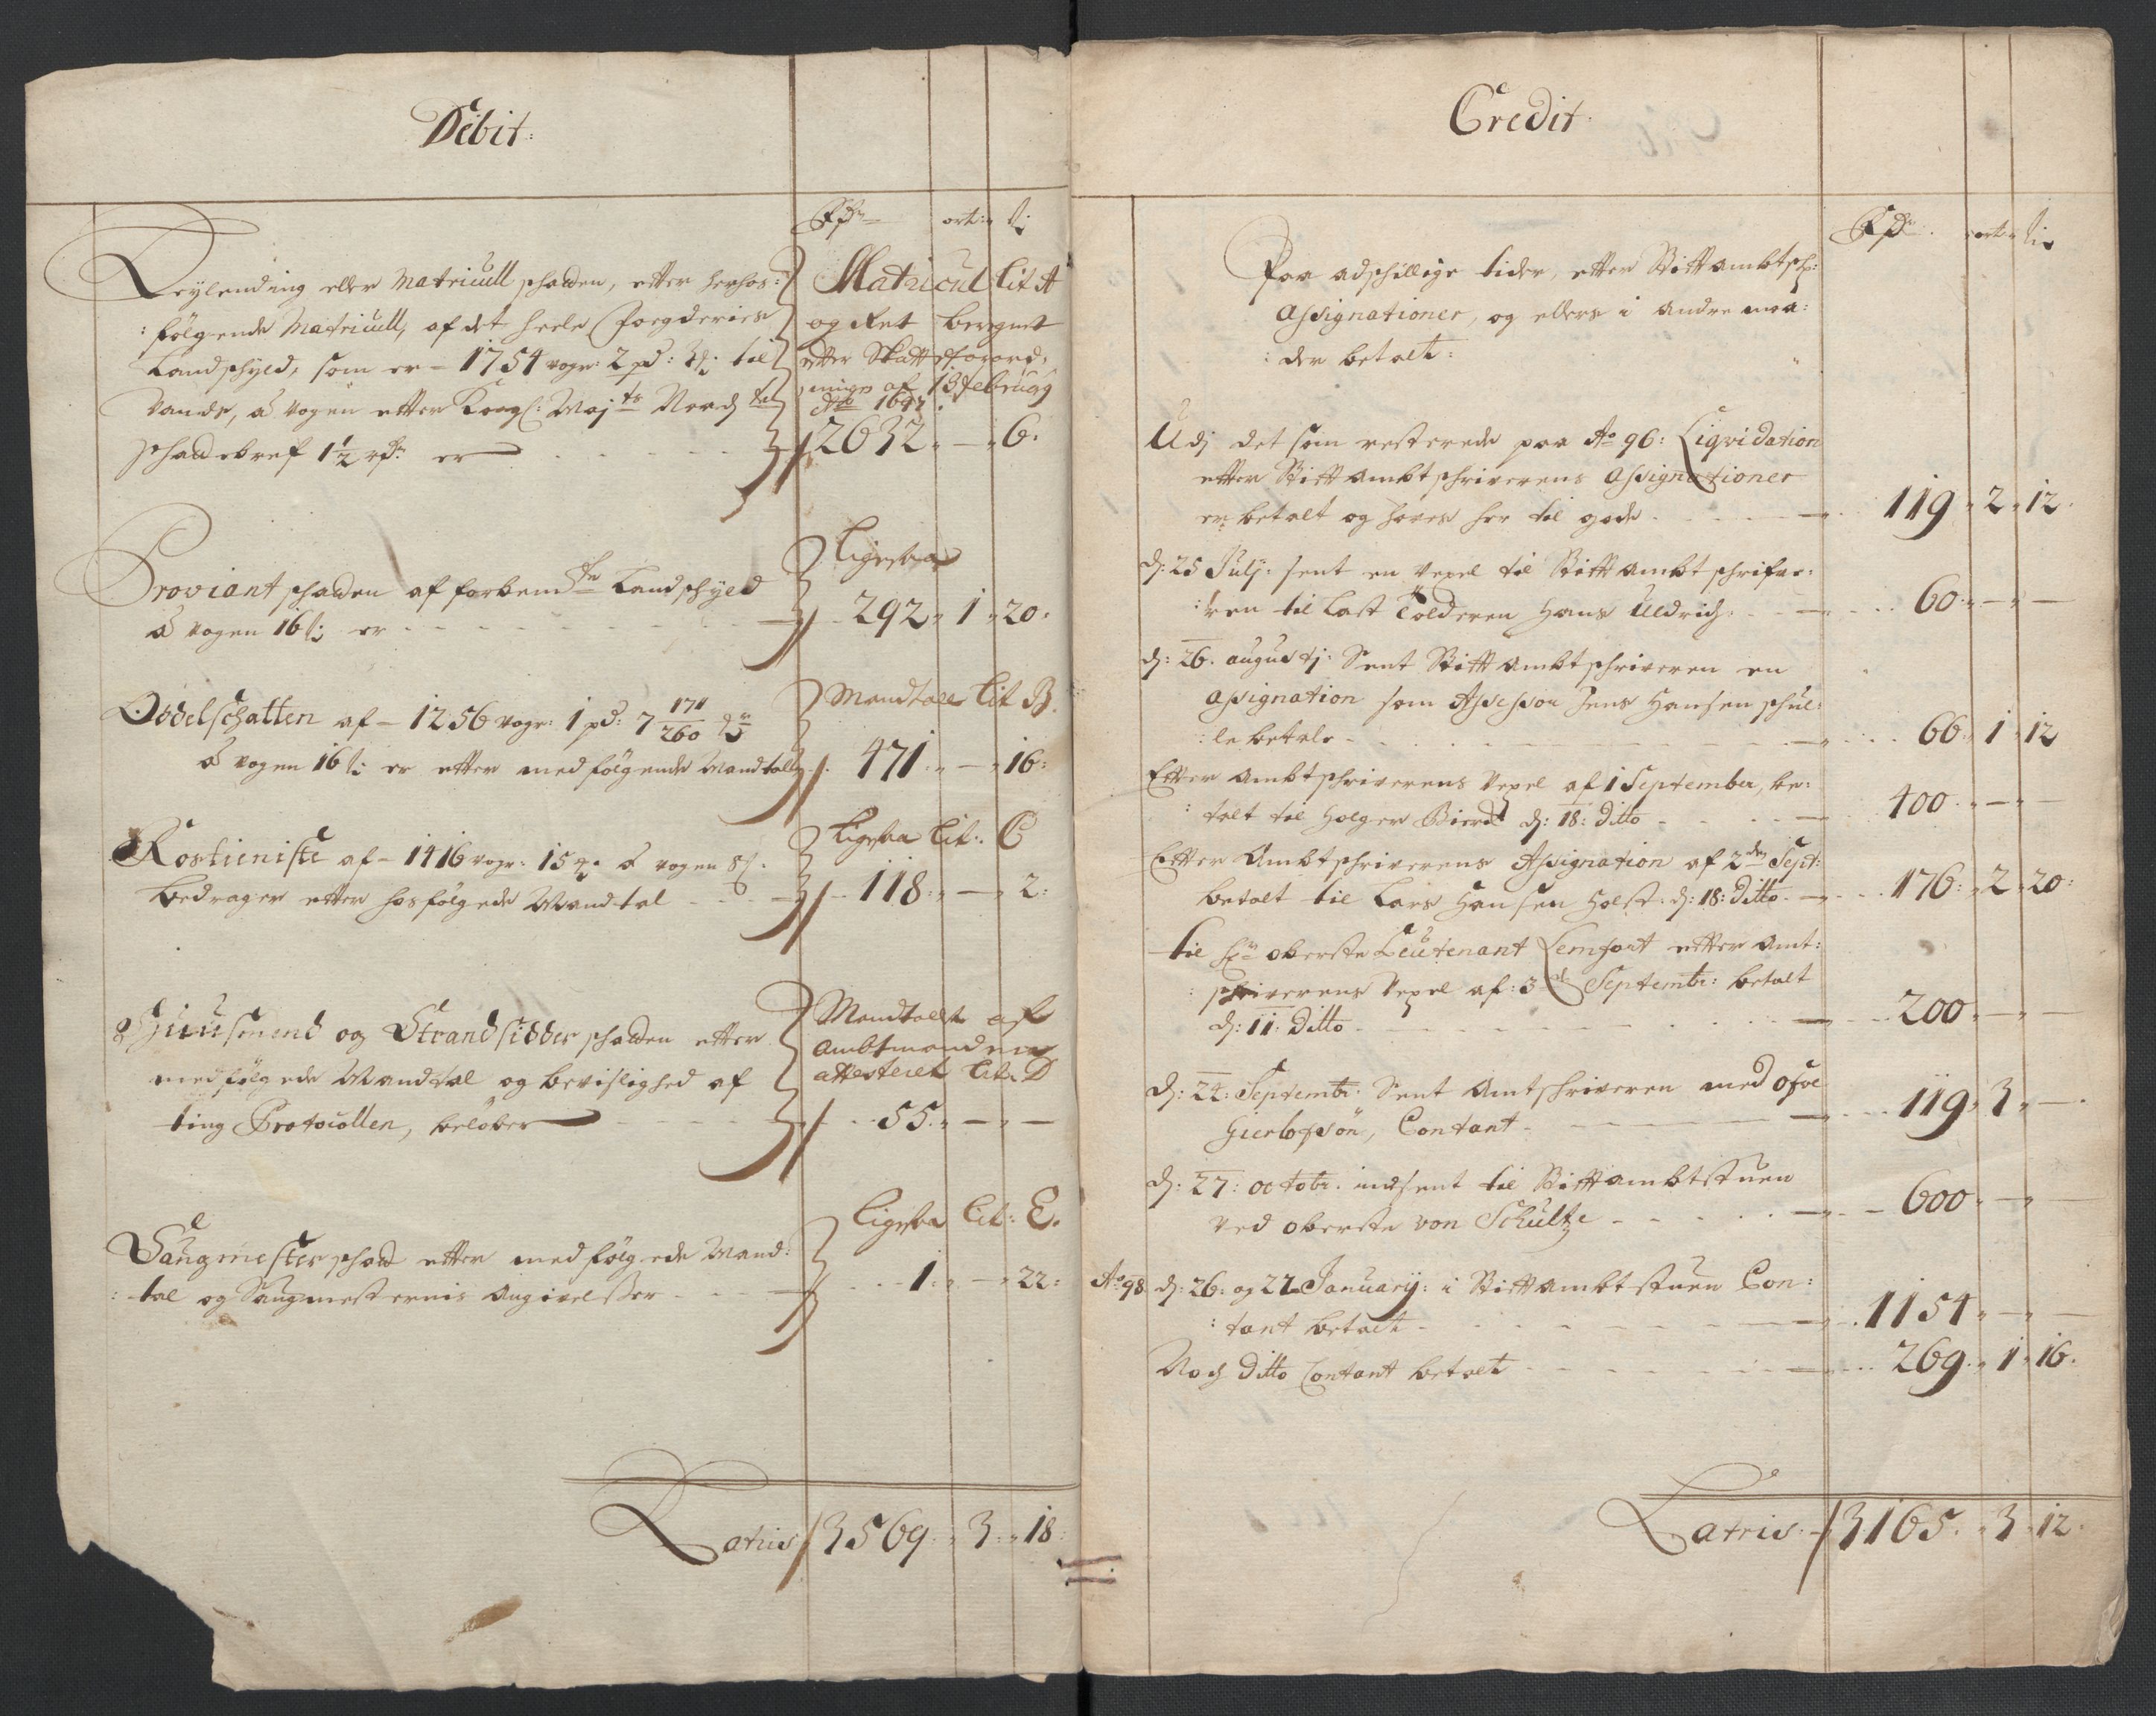 Debit:
Rdr ort: s:
Leylending eller Matricull schatten, efter herhos:
:følgende Matricull, af det heele fogderies
Landschyld, som er - 1754 voger: 2 pd: til
vande, â vogen efter Kongl: Maj ts Naad:
schattebref 1½ rdr er
Matricul Lit A
og Ret beregnet
efter Skatteforord¬
ningen af 13 February
Ao 1697.
2632 " — " 6:
Proviant schatten af forbem te Landschyld
â vogen 16 s: er
Ligesaa
292 " 1 " 20:
Oddelschatten af - 1256 voger: 1 pd: 7 171/260
â vogen 16 s: er efter medfølgende Mandtall
Mandtall Lit B.
471 " — " 16:
Rostieniste af - 1416 voger: 15 â vogen 8 s:
bedrager efter hosfølgede Mandtal
Ligesaa Lit: C
118: " — " 2:
Huusmend og Strandsidder schatten efter
medfølgede Mandtal og bevislighed af
ting Protocollen, beløber
Mandtallet af
Ambtmanden
attesteret Lit: D
55: " — " —
Saugmester schatt efter medfølgede Mand:
:tal og Saugmesternis Angivelsser
Ligesaa Lit: E.
1: " — " 22:
Latris 3569: " 3: " 18:
Credit:
Rdr: ort: s:
Paa adschillige tider, efter Stiftambtsch:
Assignationer, og ellers i andre maa:
:der betalt:
Udj det som resterede paa Ao 96: Liqvidation
efter Stiftambtschriverens Assignationer
er betalt og høres her til gode 119 " 2 " 12:
d: 25 Julÿ: sent en vexel til Stiftambtschrifue:
:ren til Last Tolderen Hans Uldrich: 60: " — " —
d: 26. augustj: Sent Stiftambtschriveren en
assignation som Assessor Jens Hansen schul:
:le betale 66: 1 " 12
Efter Ambtschriverens vexel af 1 September, be:
:talt til Holger d: 18: ditto 400 " — " —
Efter Ambtschriverens Assignation af 2den Sept:
betalt til Lars Hansen Holst: d: 18: ditto 176: " 2 " 20:
til Hr oberste Leutenant Lemfort efter Amt:
:schriverens Vexel af: 3 d Septembr: betalt
d: 11: ditto 200 " — " —
d: 24: Septembr: Sent Amtschriveren med
, Contant 119 " 3 " —
d: 27: octobr. indsent til Stiftambtstuen
ved oberste von Schultz 600 " — " —
Ao 98 d: 26: og 27 Januarÿ: i Stiftambtstuen Con:
:tant betalt 1154 " — " —
Noch ditto Contant betalt 269 " 1 " 16:
Latris: 3165: " 3 " 12: